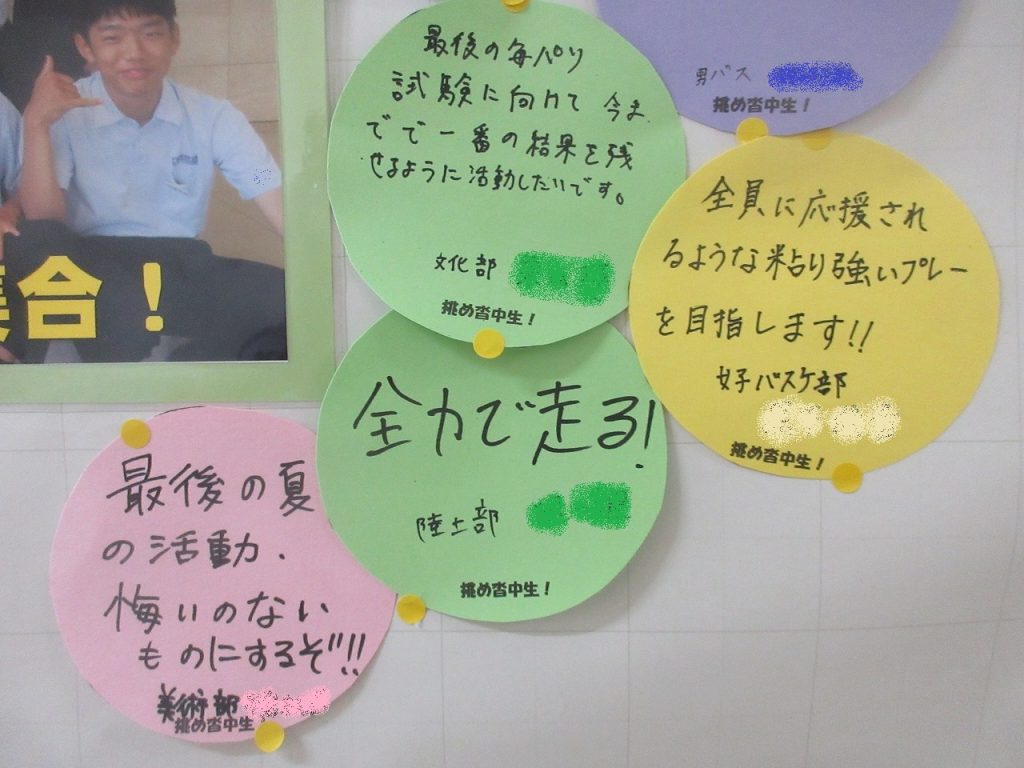 集合！
最後の毎パソ
試験に向けて 今ま
でで一番の結果を残
せるように活動したいです。
文化部
挑め沓中生！
男バス
挑め沓中生！
全員に応援され
るような粘り強いプレー
を目指します!!
女子バスケ部
挑め沓中生！
全力で走る!
陸上部
挑め沓中生！
最後の夏
の活動．
悔いのない
ものにするぞ!!
美術部
挑め沓中生